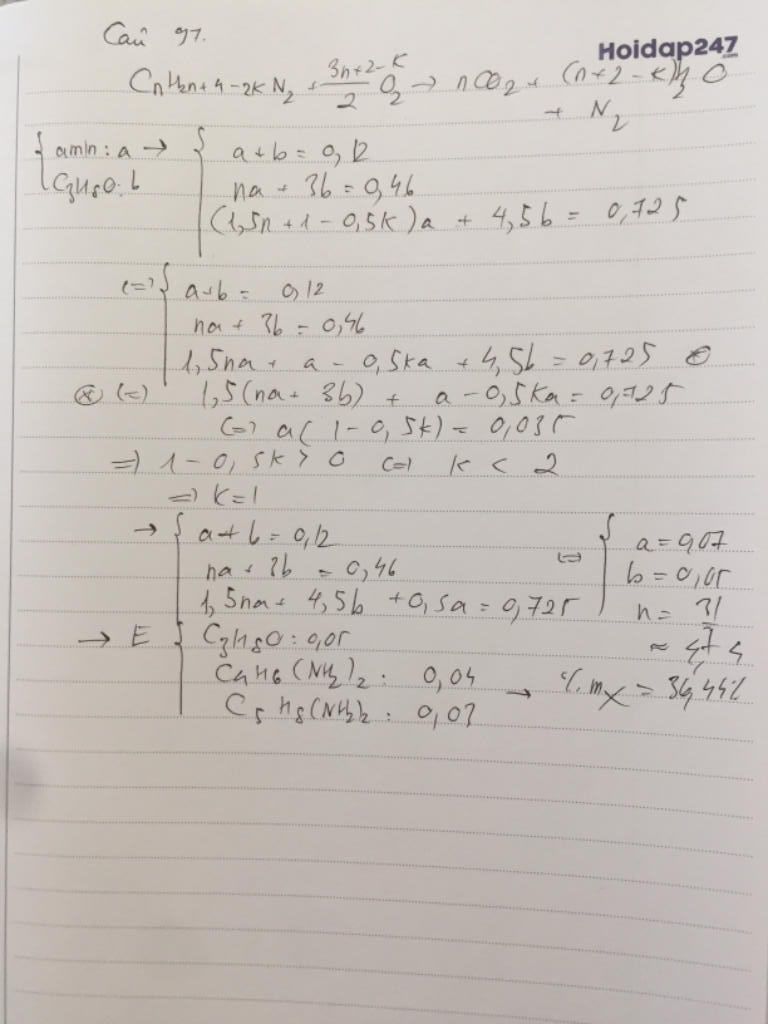 Câu 97.
Hoidap247
CnH2n+4-2kN2 + (3n+2-k)/2 O2 → nCO2 + (n+2-k)H2O
+ N2
{ amin : a → { a+b = 0,12
C3H8O : b na + 3b = 0,46
(1,5n + 1 - 0,5k)a + 4,5b = 0,725
(=) { a+b = 0,12
na + 3b = 0,46
1,5na + a - 0,5ka + 4,5b = 0,725 ⊛
⊛ (=) 1,5(na + 3b) + a - 0,5ka = 0,725
(=) a(1 - 0,5k) = 0,035
=) 1 - 0,5k > 0 (=) k < 2
=) k = 1
→ { a+b = 0,12 (=) { a = 0,07
na + 3b = 0,46 b = 0,05
1,5na + 4,5b + 0,5a = 0,725 n = 31/7
≈ 4,4
→ E { C3H8O : 0,05
C4H6(NH2)2 : 0,04 → %mX = 36,44%
C5H8(NH2)2 : 0,03